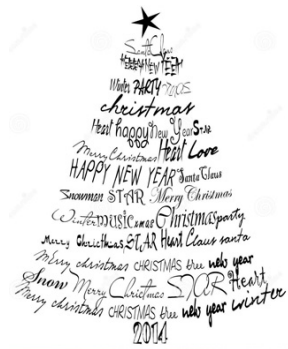 Santa Claus
HAPPY NEW YEAR
Winter PARTY 2005
christmas
Heart happy New Year STAR
Merry Christmas Heart Love
HAPPY NEW YEAR Santa Claus
Snowman STAR Merry Christmas
Winter music xmas Christmas party
Merry Christmas STAR Heart Claus santa
Merry christmas CHRISTMAS tree new year
Snow Merry Christmas STAR Heart
Merry christmas CHRISTMAS tree new year winter
2014